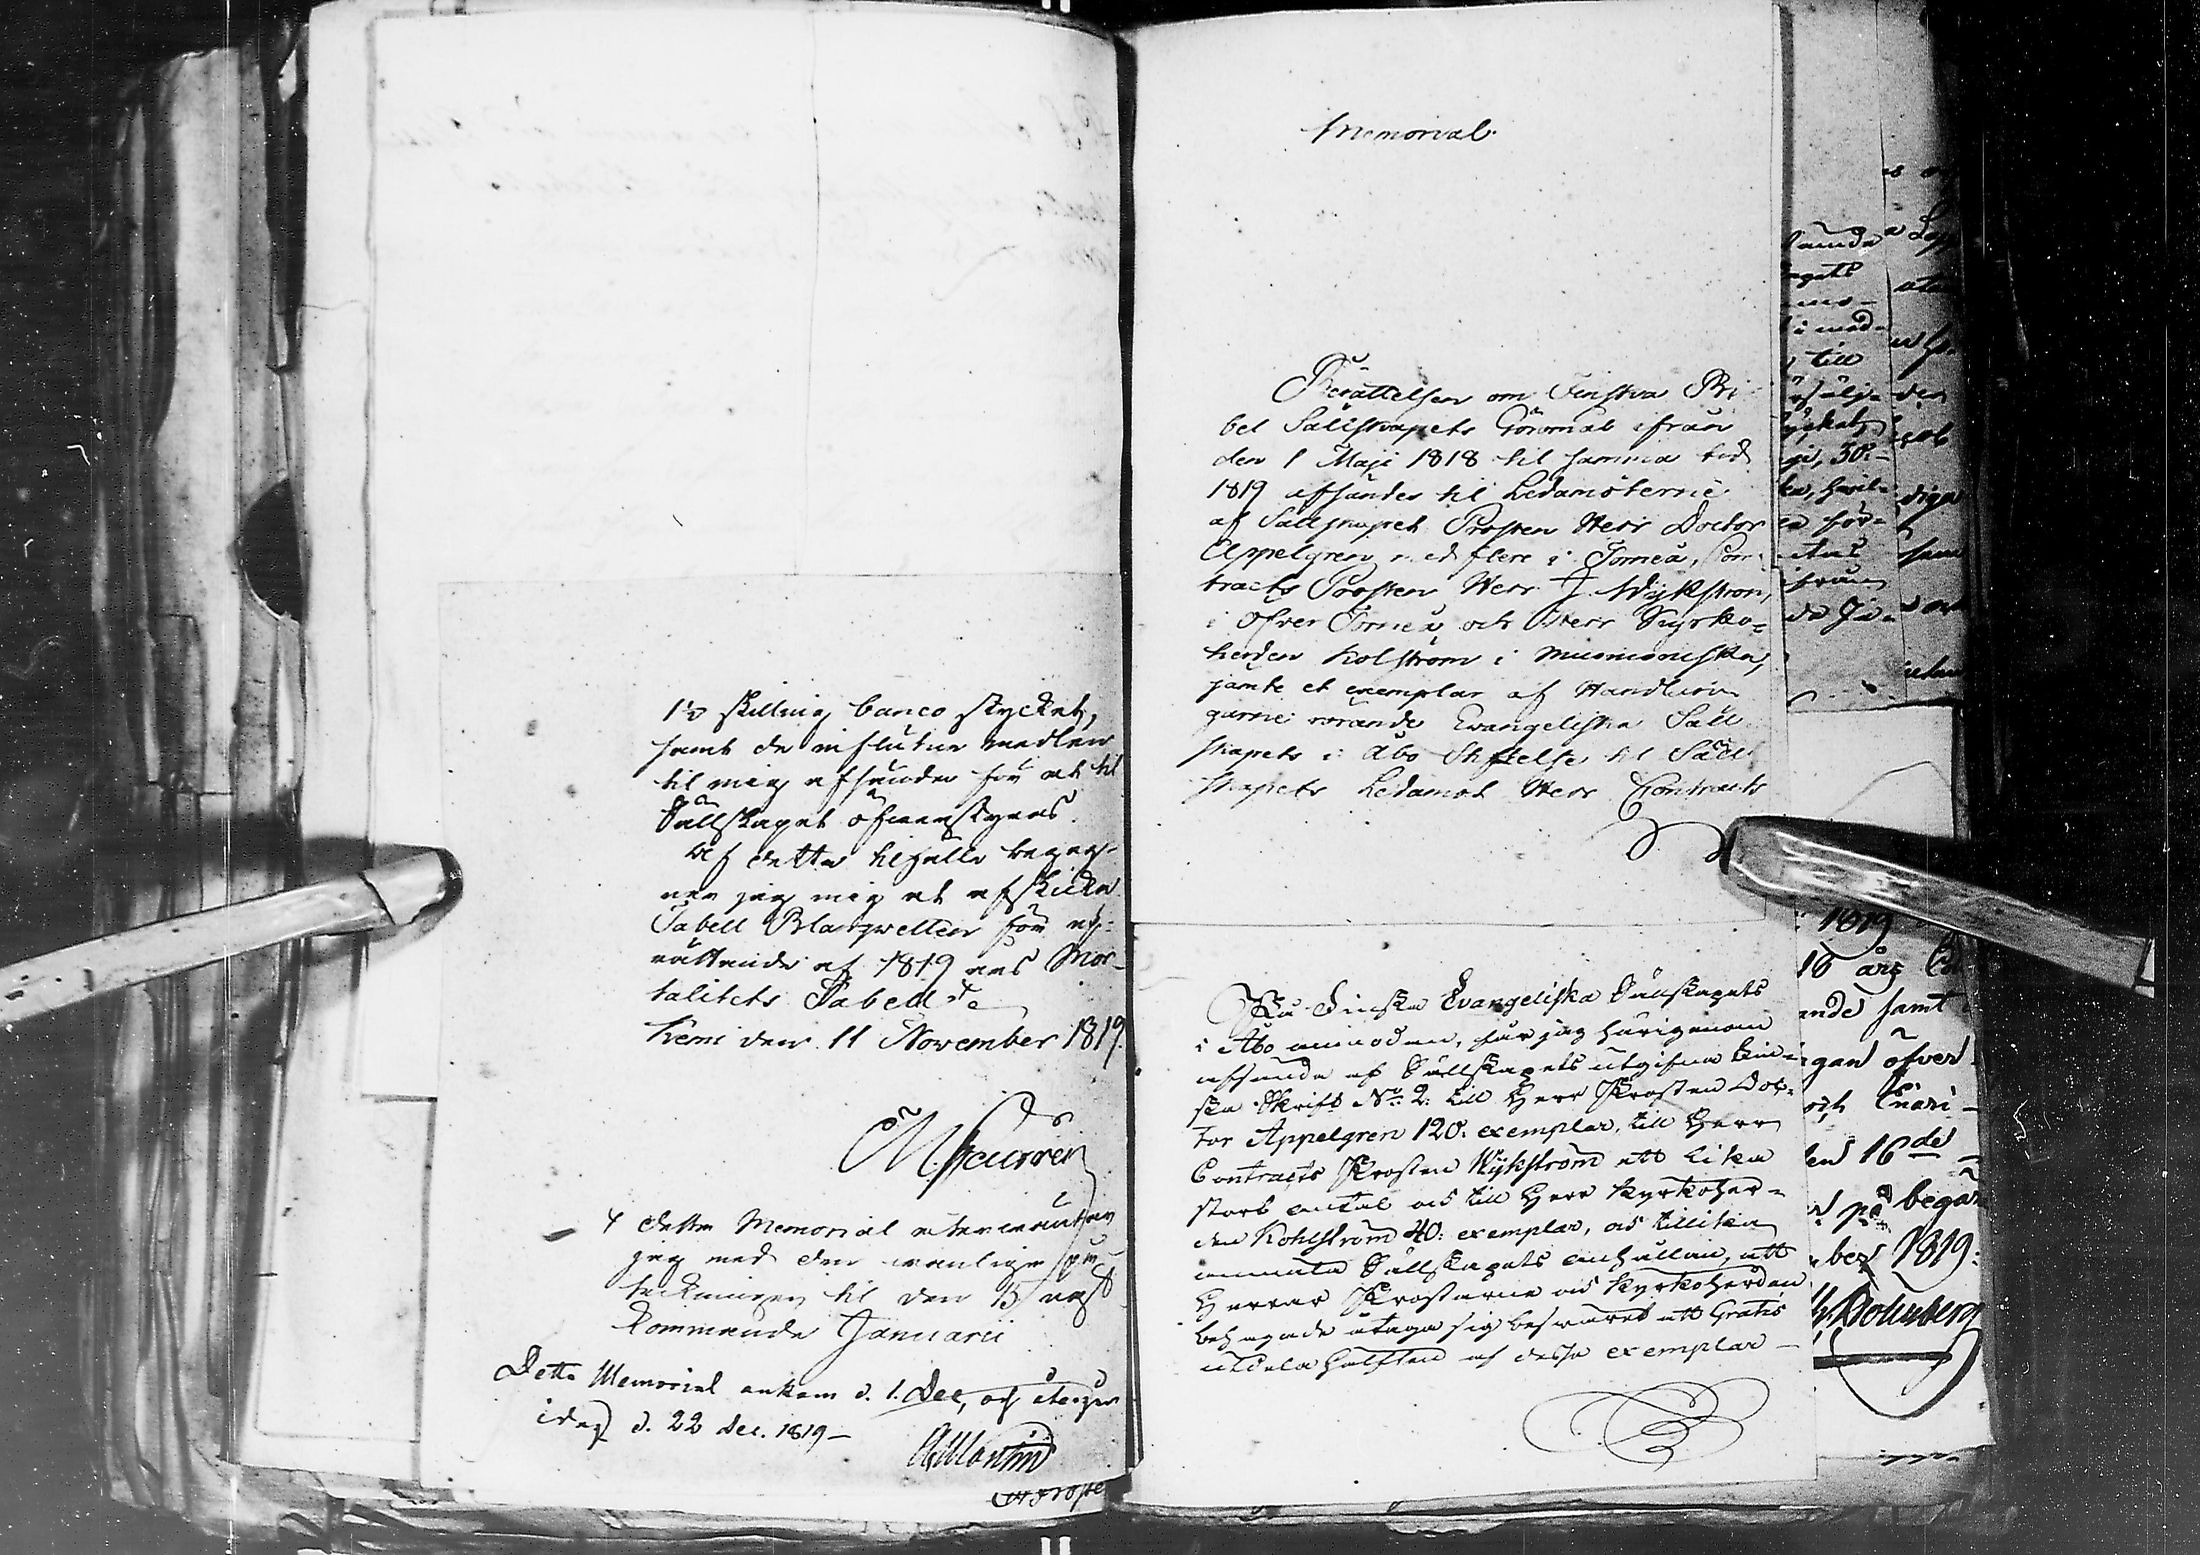 1½ skilling banco stycket,
samt de influtne medlen
til mig afsändes för at til
Sällskapet öfverstyras.
Af detta tilfälle begag-
nar jag mig at afskicka
Tabell Blanqvetten för up-
rättande af 1819 års Mor-
talitets Tabell &c
Kemi den 11 November 1819.
M Wacuren
Detta Memorial återväntar
jag med den vanlige på
teckningen til den 15 näst
kommande Januarii
Detta Memorial ankom d. 1. Dec, och återgår
idag d. 22 dec. 1819 –
Memorial.
Berättelsen om Finska Bi
bel Sällskapets Göromål ifrån
den 1 Maji 1818 til samma tid
1819 afsändes til Ledamöterne
af Sällskapet Prosten Herr Doctor
Appelgren med flere i Torneå, Con-
tracts Prosten Herr J. Wykström,
i Öfver Torneå, och Herr Kyrko-
herden Kolström i Muonioniska,
jämte et exemplar af Handlin
garne rörande Evangeliska Säll
skapets i Åbo Stiftelse til Säll
skapets Ledamot Herr Contracts
På Finska Evangeliska Sällskapets
i Åbo anmodan, får jag härigenom
afsända af Sällskapets utgifna Fin-
ska Skrift No 2: till Herr Prosten Doc-
tor Appelgren 120: exemplar, till Herr
Contracts Prosten Wykström ett lika
stort antal och till Herr Kyrkoher-
den Kohlström 40: exemplar, och tillika
anmäla Sällskapets anhållan, att
Herrar Prostarne och Kyrkoherden
behagade åtaga sig besväret att Gratis
utdela Hälften af dessa exemplar –
till
1819
16 års
ande samt
öfver
och Enari-
den 16de
på begär
1819: